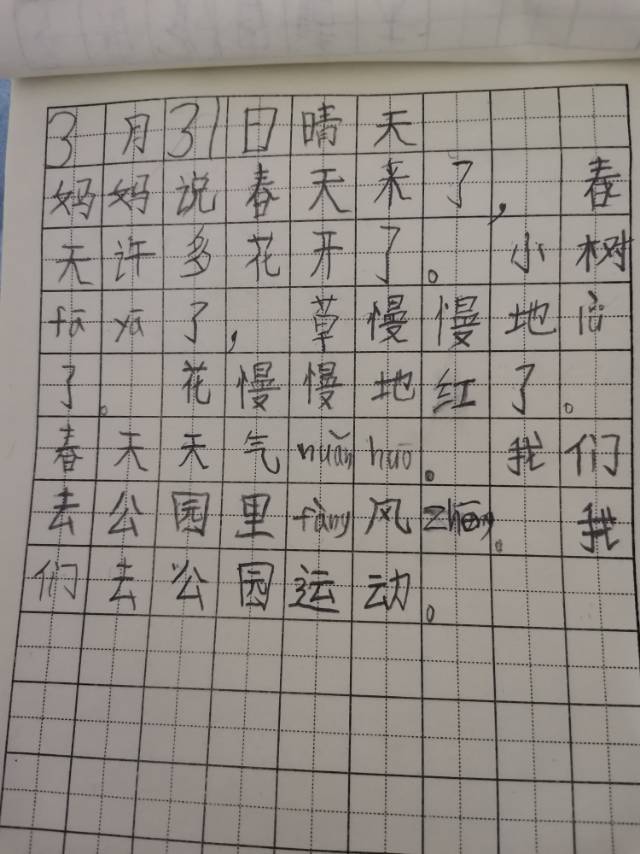 3月31日晴天
妈妈说春天来了，春
天许多花开了。小树
fā yā了，草慢慢地lǜ
了。花慢慢地红了。
春天天气nuǎn huō。我们
去公园里fàng风zhēng。我
们去公园运动。